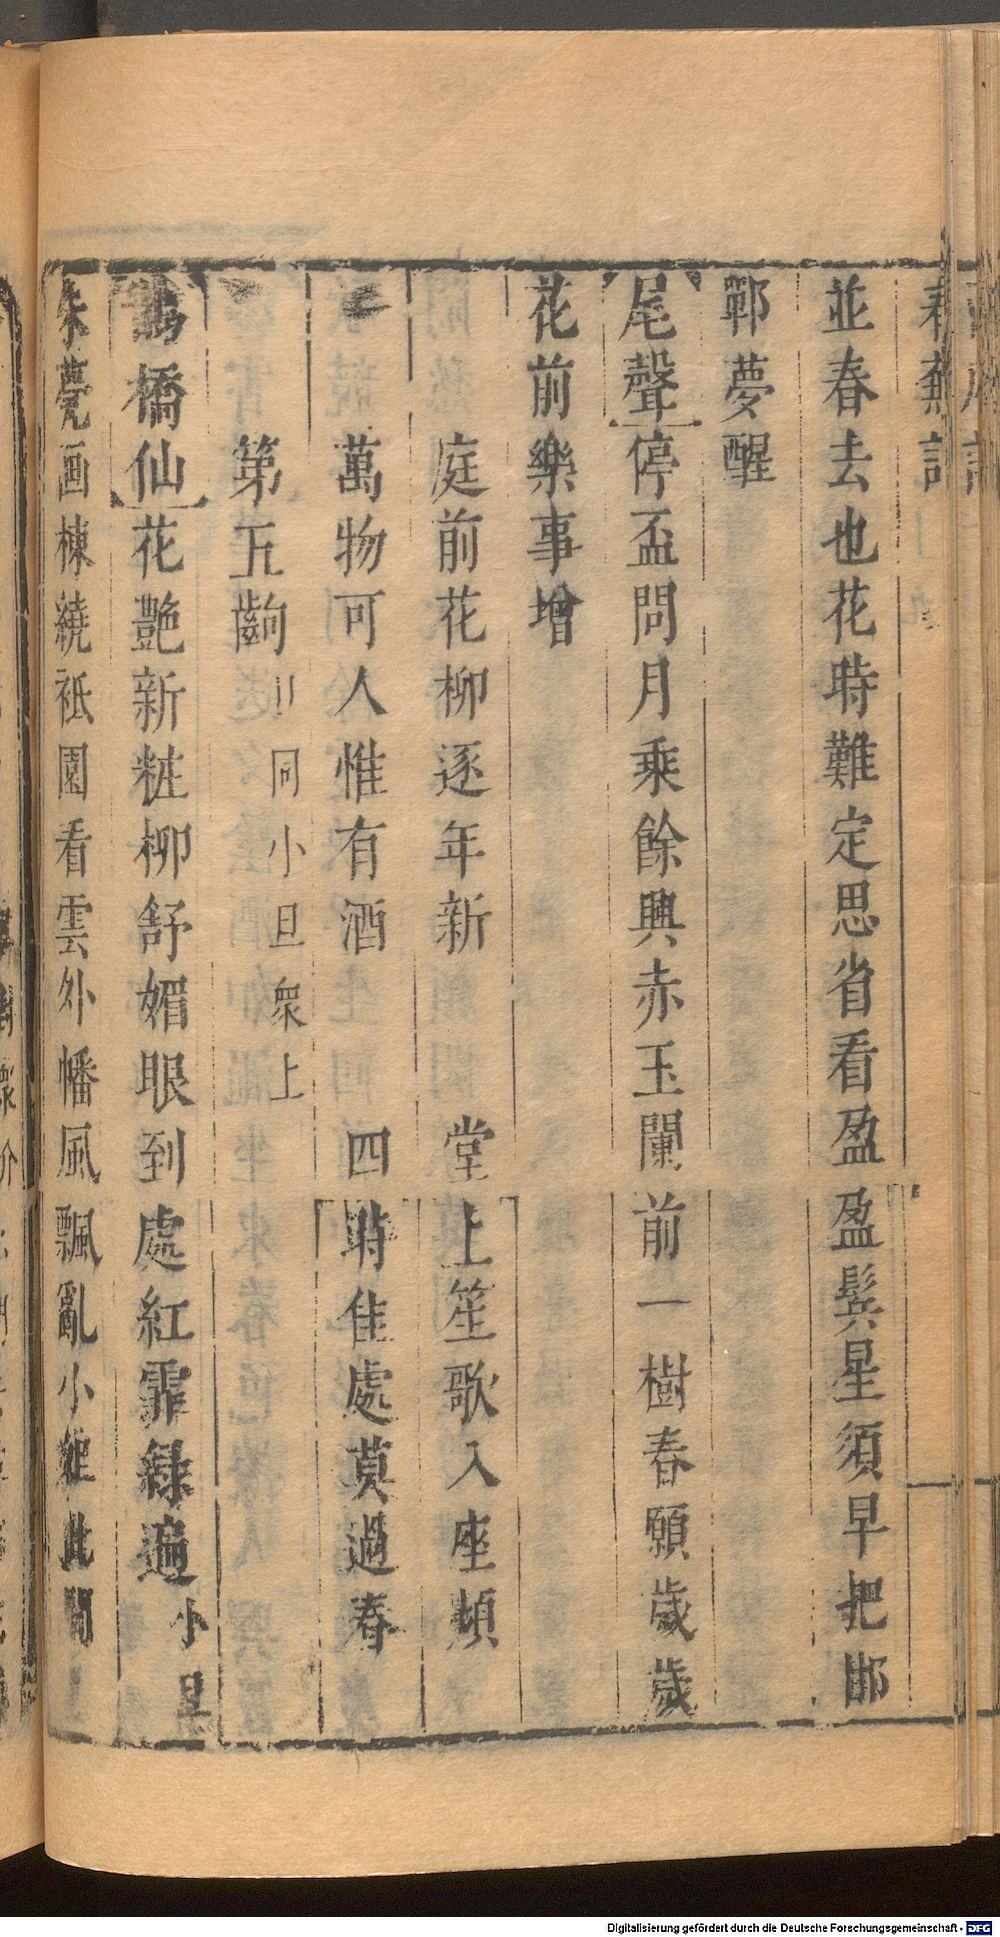 並春去也花時難定思省看盈盈鬂星須早把邯
鄲夢醒
尾聲停盃問月乘餘興赤玉闌前一樹春願歲歲
花前樂事增
庭前花柳逐年新 堂上笙歌入座頻
萬物可人惟有酒 四時佳處莫過春
第五齣 〢同小旦衆上
鵲橋仙花艷新粧柳舒媚眼到處紅霏綠遍 小旦
朱甍画棟繞祇園看雲外幡風飄亂小 此間
Digitalisierung gefördert durch die Deutsche Forschungsgemeinschaft - DFG